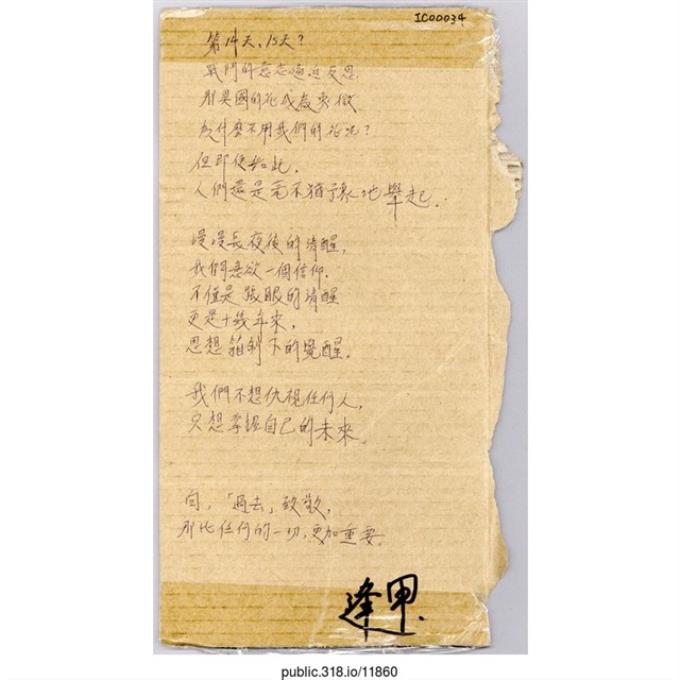 IC00034
第14天、15天?
戰鬥的意志逼迫反思,
那異國的花成為象徵
為什麼不用我們的花呢?
但即使如此,
人們還是毫不猶豫地舉起.
漫漫長夜後的清醒,
我們意欲一個信仰.
不僅是張眼的清醒
更是十幾年來,
思想箝制下的覺醒.
我們不想仇視任何人,
只想掌握自己的未來.
向,「過去」致敬,
那比任何的一切,更加重要.
逢甲.
public.318.io/11860